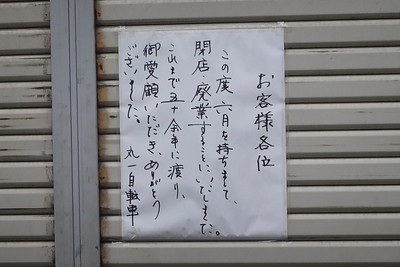 お客様各位
この度六月を持ちまして、
閉店・廃業することにいたしました。
これまで五十余年に渡り、
御愛顧いただきありがとう
ございました。
丸一自転車